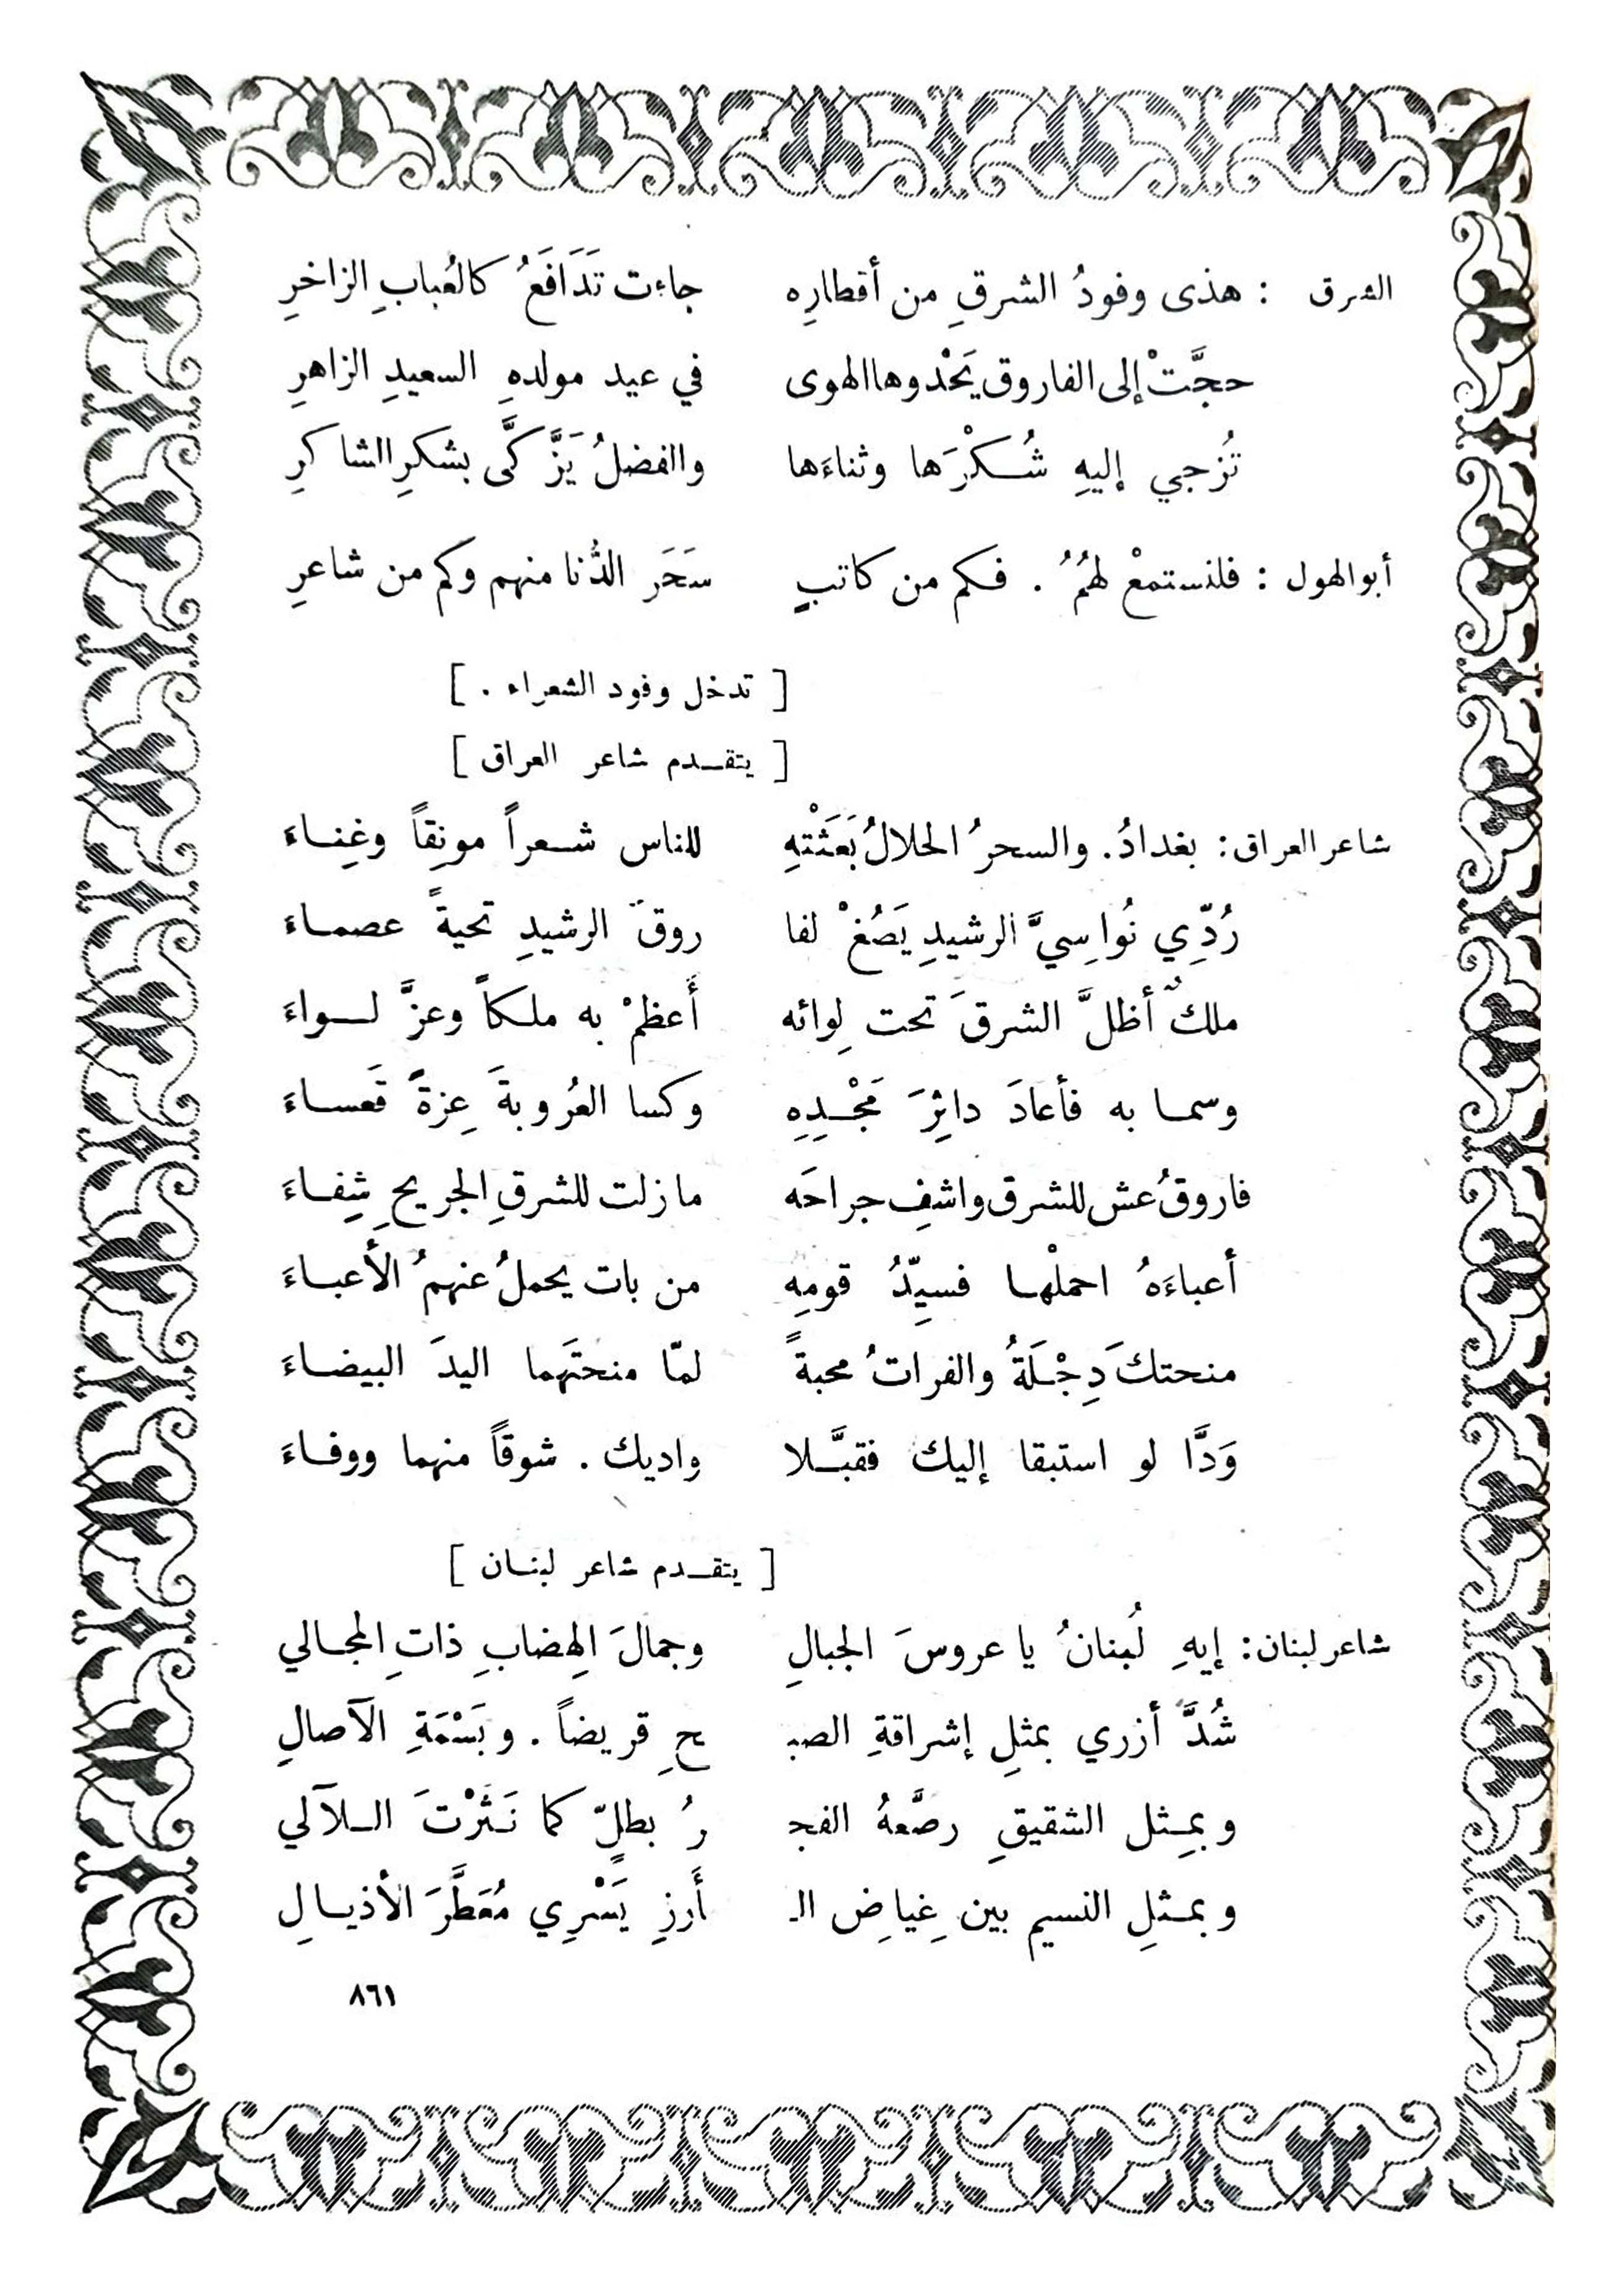 الشرق : هذى وفودُ الشرقِ من أقطارِه جاءت تَدَافَعُ كالعُبابِ الزاخرِ
حجَّتْ إلى الفاروق يَحْدوها الهوى في عيد مولدهِ السعيدِ الزاهرِ
تُزجي إليهِ شُكْرَها وثناءَها والفضلُ يَزَّكَّى بشكرِ الشاكرِ
أبو الهول : فلنستمعْ لهمُ . فكم من كاتبٍ سَحَر الدُّنا منهم وكم من شاعرِ
[ تدخل وفود الشعراء . ]
[ يتقدم شاعر العراق ]
شاعر العراق : بغدادُ . والسحرُ الحلالُ بَعَثْتِهِ للناس شعراً مونِقاً وغِناءَ
رُدِّي نُواسِيَّ الرشيدِ يَصُغْ لفا روق الرشيدِ تحيةً عصماءَ
ملكٌ أظلَّ الشرقَ تحت لِوائه أَعظمْ به ملكاً وعزَّ لواءَ
وسما به فأعادَ داثِرَ مَجْدِهِ وكسا العُروبةَ عِزةً قَعساءَ
فاروقُ عش للشرق واشفِ جراحَه ما زلت للشرقِ الجريحِ شِفاءَ
أعباءَهُ احملْها فسيِّدُ قومِه من بات يحملُ عنهمُ الأعباءَ
منحتكَ دِجْلَةُ والفراتُ محبةً لمّا منحتَهما اليدَ البيضاءَ
وَدَّا لو استبقا إليك فقبَّلا واديك . شوقاً منهما ووفاءَ
[ يتقدم شاعر لبنان ]
شاعر لبنان : إيهِ لُبنانُ يا عروسَ الجبالِ وجمالَ الهِضابِ ذاتِ المجالي
شُدَّ أزري بمثلِ إشراقةِ الصبـ ـحِ قريضاً . وبَسْمَةِ الآصالِ
وبمِثل الشقيقِ رصَّعهُ الفجـ ـرُ بطلٍّ كما نَثَرْتَ اللآلي
وبمثلِ النسيمِ بين غِياضِ الـ أَرزِ يَسْرِي مُعَطَّرَ الأذيالِ
٨٦١